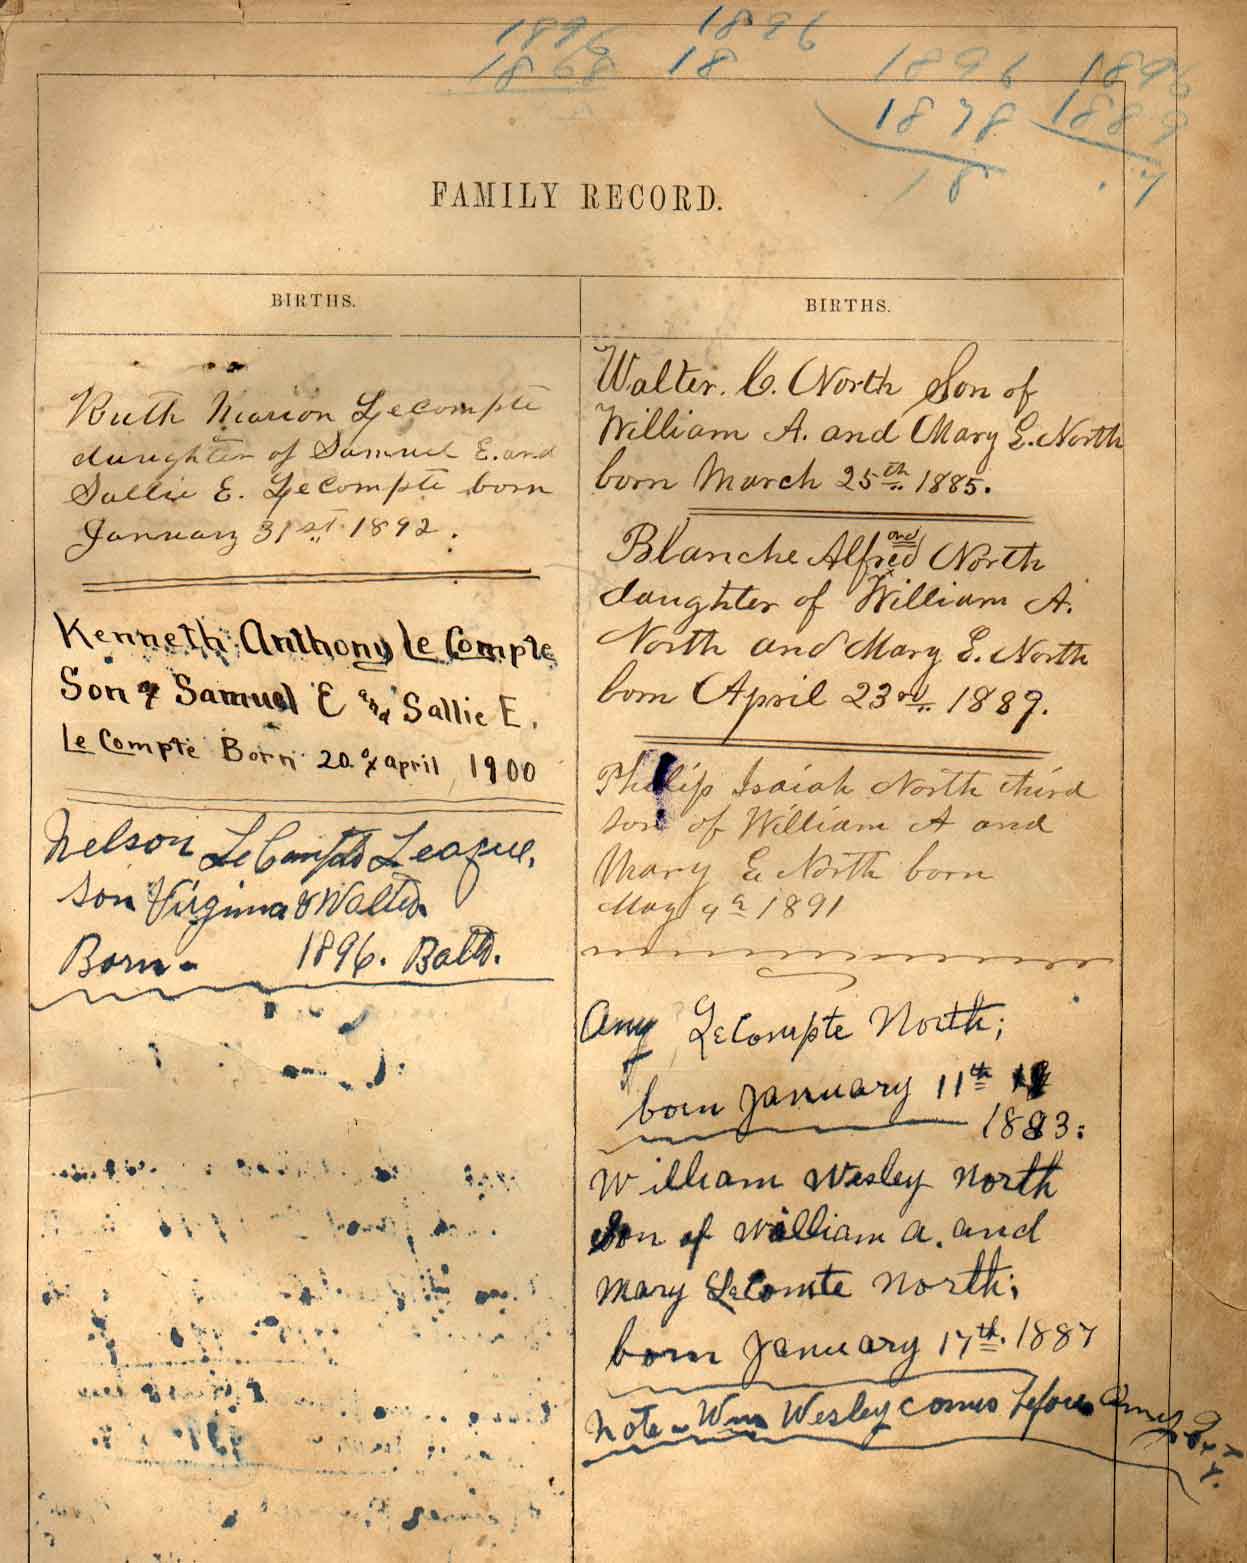 1896 1896
1868 18
1896 1896
1878 1889
18 7
FAMILY RECORD.
BIRTHS.
Ruth Marion LeCompte
daughter of Samuel E. and
Sallie E. LeCompte born
January 31st. 1892.
Kenneth Anthony Le Compte
Son of Samuel E and Sallie E.
Le Compte Born 20 of april 1900
Nelson LeCompte League.
Son Virginia & Walter
Born - 1896. Balto.
BIRTHS.
Walter. C. North Son of
William A. and Mary E. North
born March 25th 1885.
and
Blanche Alfred North
daughter of William A.
North and Mary E. North
born April 23rd. 1889.
Phillip Isaiah North third
son of William A and
Mary E North born
May 1891
Amy LeCompte North;
born January 11th
1893:
William Wesley North
Son of William a. and
Mary LeComte North;
born January 17th. 1887
Note - Wm Wesley comes before Amy